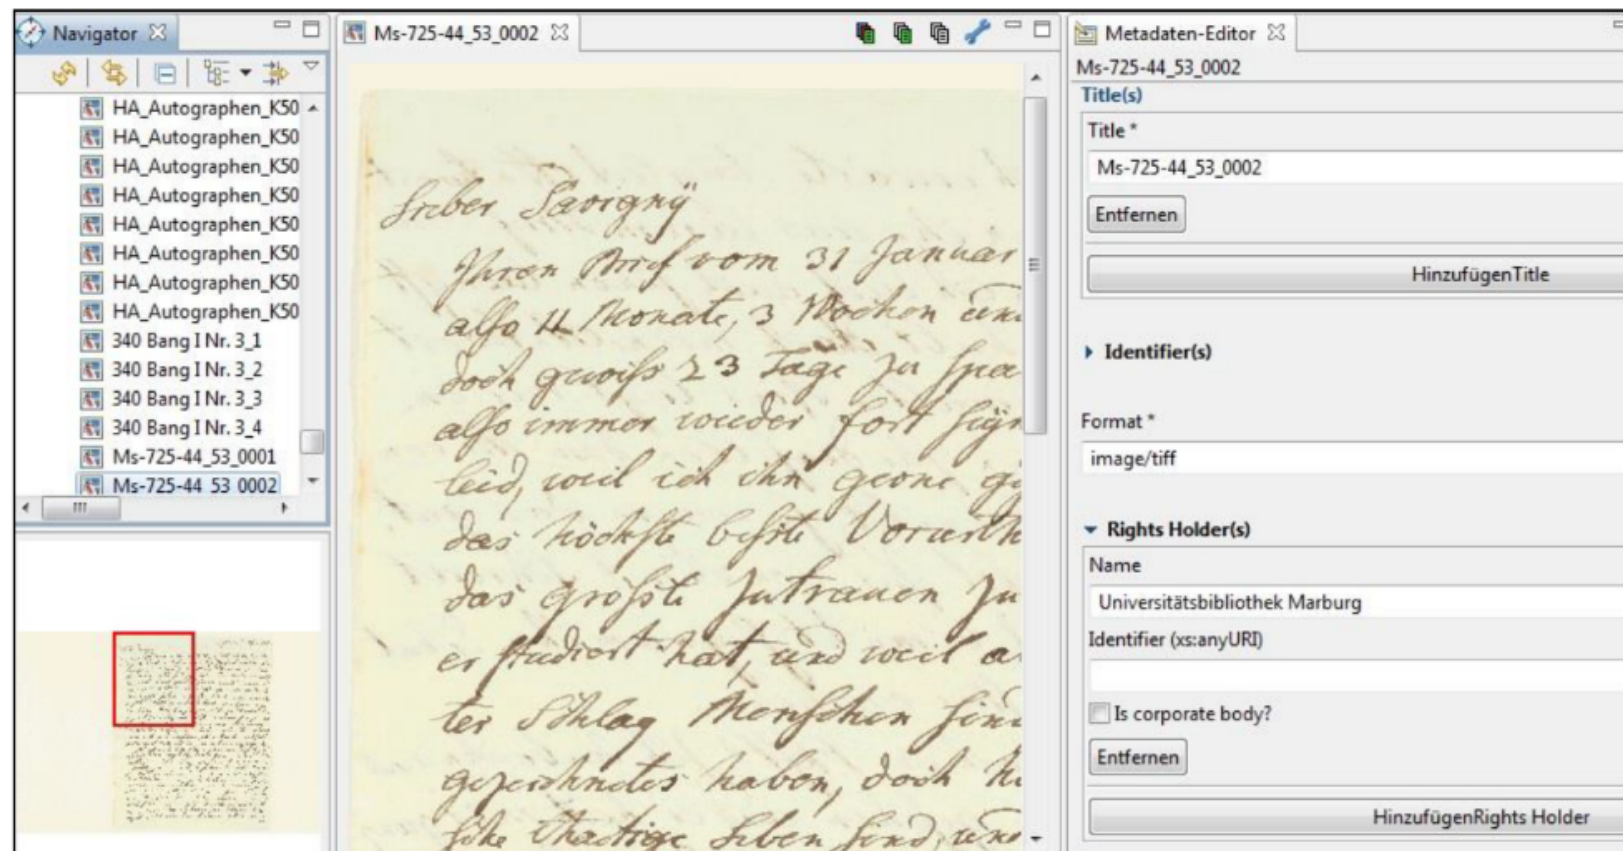 Navigator
HA_Autographen_K50
HA_Autographen_K50
HA_Autographen_K50
HA_Autographen_K50
HA_Autographen_K50
HA_Autographen_K50
HA_Autographen_K50
HA_Autographen_K50
340 Bang I Nr. 3_1
340 Bang I Nr. 3_2
340 Bang I Nr. 3_3
340 Bang I Nr. 3_4
Ms-725-44_53_0001
Ms-725-44_53_0002
Ms-725-44_53_0002
Lieber Savigny
Ihren Brief vom 31 Januar
also 11 Monate, 3 Wochen und
doch gewiss 23 Tage zu spä
also immer wieder fort
leid, weil ich ihn gerne
das höchste beste Vorurth
das grösste Zutrauen zu
er studiert hat, und weil a
ter Schlag Menschen sind
gezeichnetes haben, doch
thaetige Leben sind, und
Metadaten-Editor
Ms-725-44_53_0002
Title(s)
Title *
Ms-725-44_53_0002
Entfernen
HinzufügenTitle
Identifier(s)
Format *
image/tiff
Rights Holder(s)
Name
Universitätsbibliothek Marburg
Identifier (xs:anyURI)
Is corporate body?
Entfernen
HinzufügenRights Holder